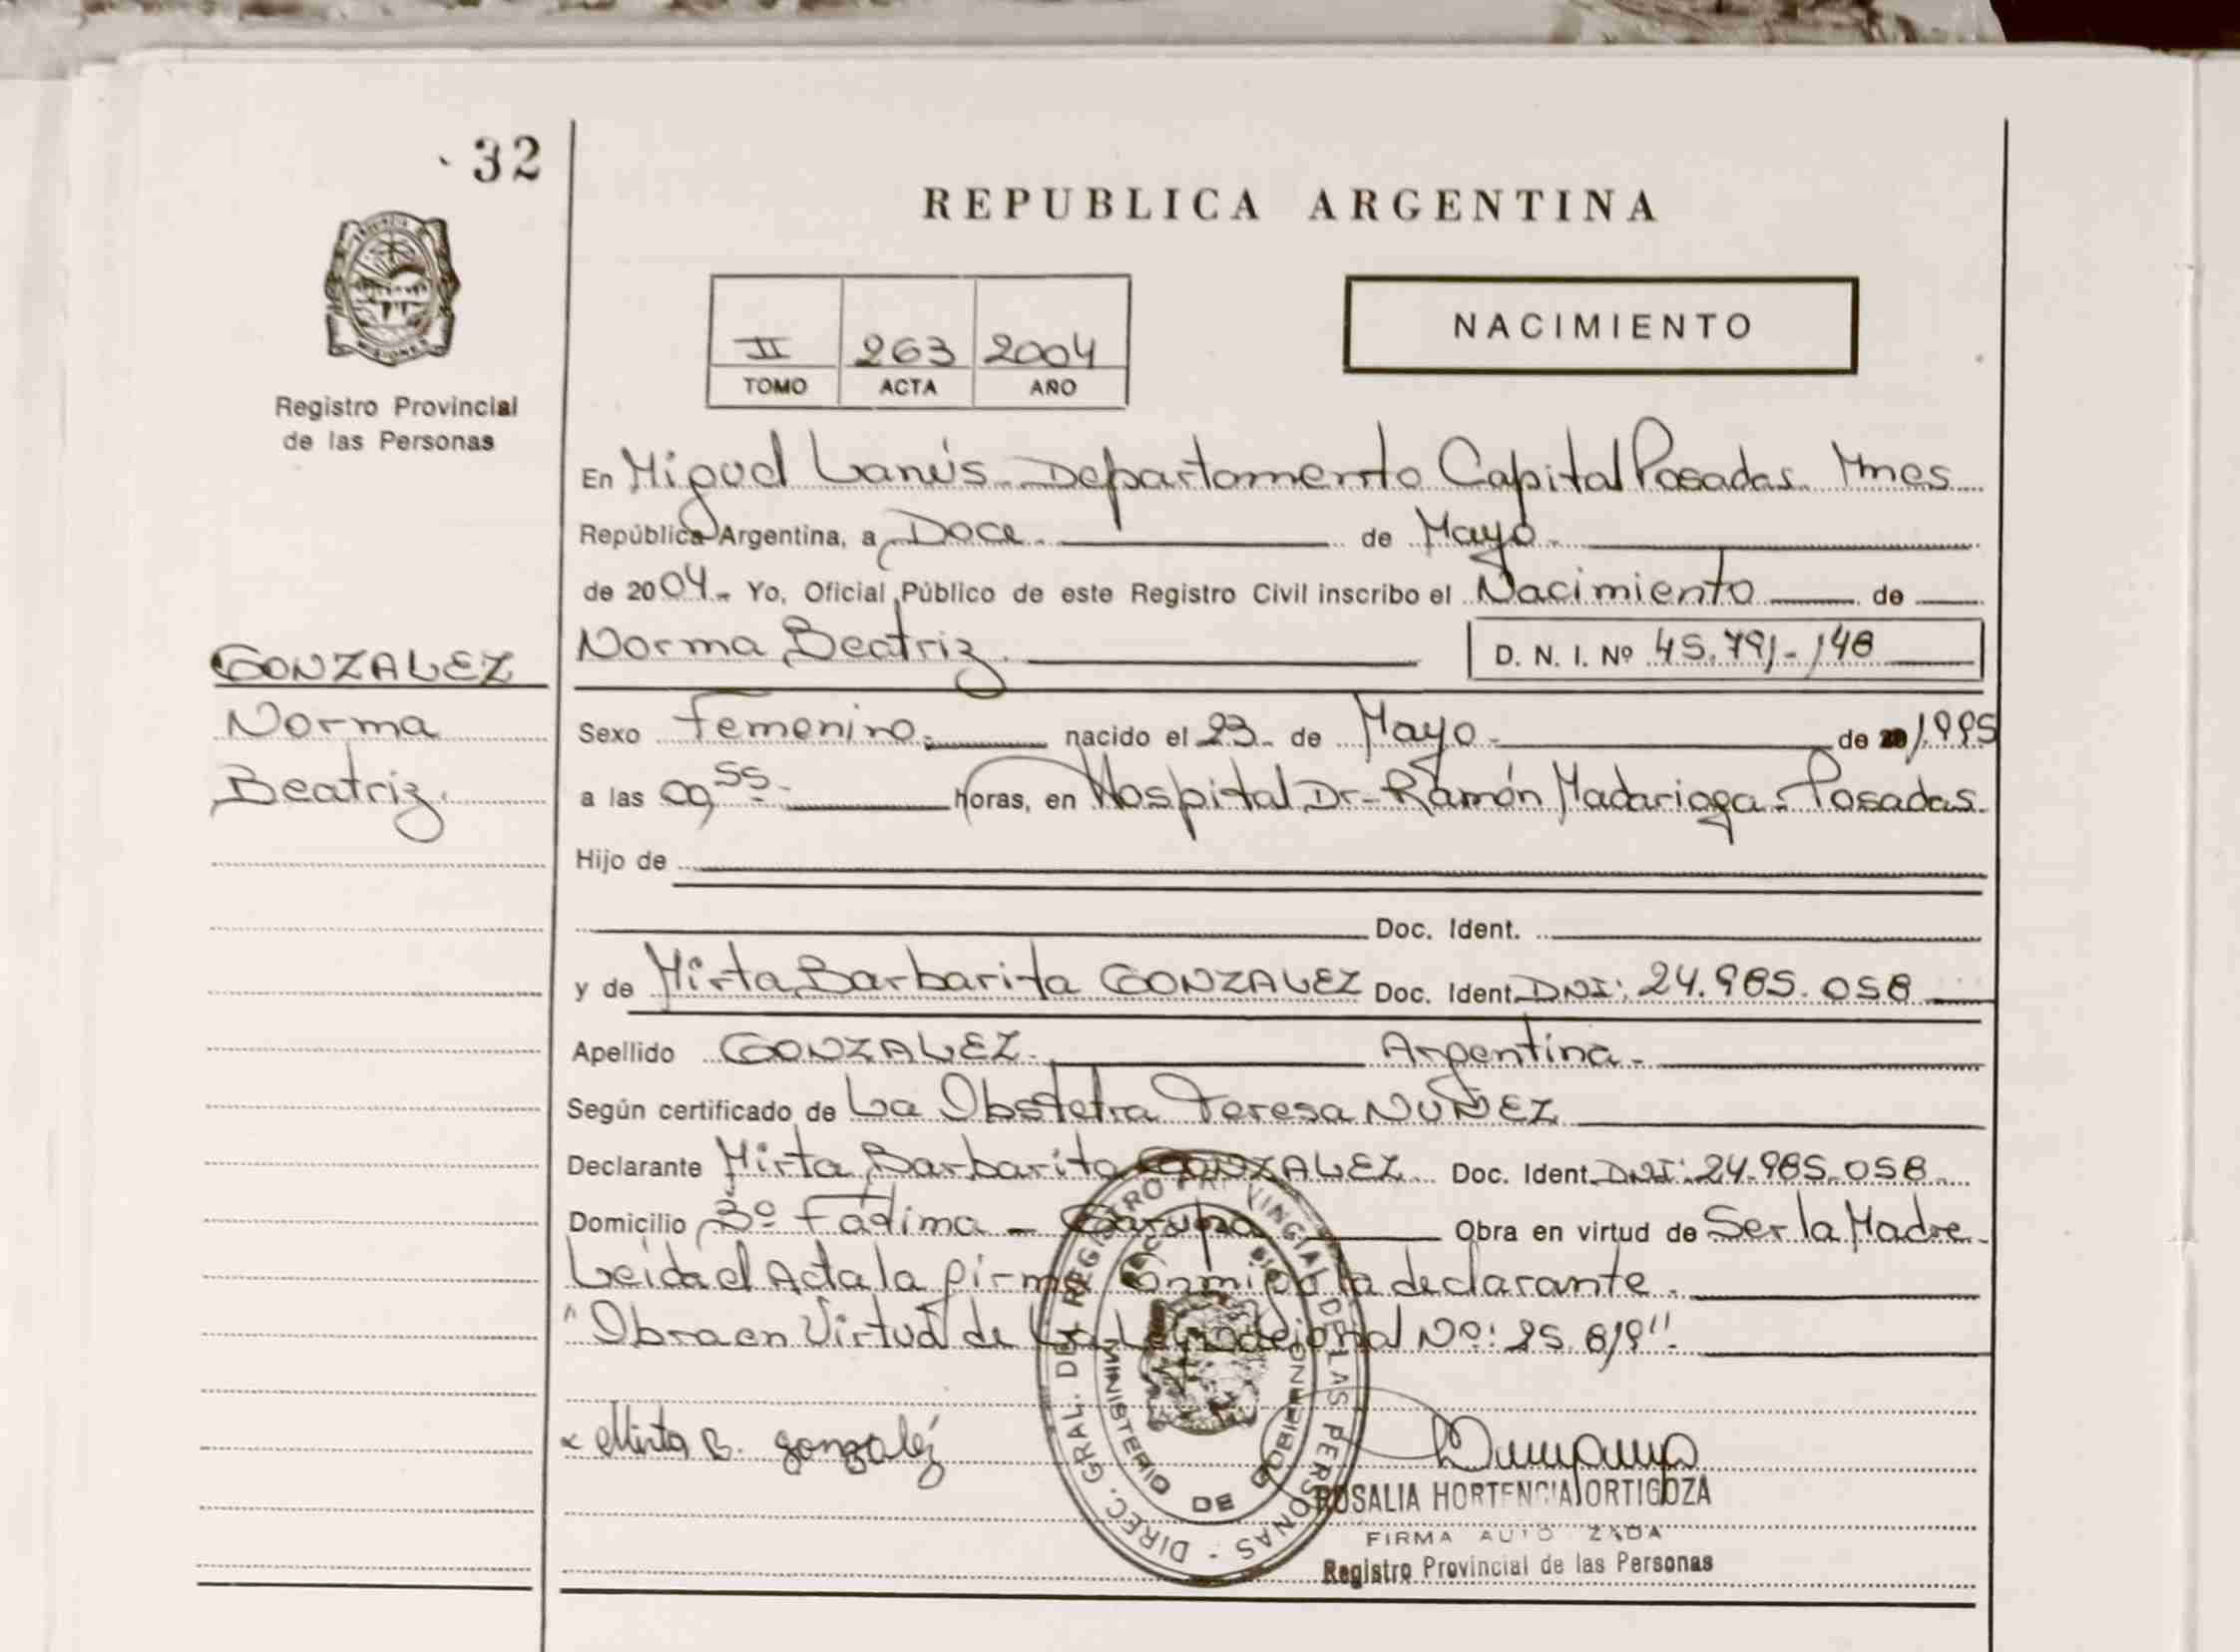 32
REPUBLICA ARGENTINA
NACIMIENTO
II 263 2004
TOMO ACTA AÑO
MISIONES
Registro Provincial
de las Personas
En Miguel Lanús Departamento Capital Posadas Mnes
República Argentina, a Doce de Mayo
de 2004 Yo, Oficial Público de este Registro Civil inscribo el Nacimiento de
GONZALEZ
Norma
Beatriz
Norma Beatriz D. N. I. Nº 45.791-148
Sexo Femenino nacido el 23 de Mayo de 1995
a las 09 55 horas, en Hospital Dr Ramón Madariaga Posadas
Hijo de
Doc. Ident.
y de Mirta Barbarita GONZALEZ Doc. Ident. DNI: 24.985.058
Apellido GONZALEZ Argentina
Según certificado de La Obstetra Teresa NUÑEZ
Declarante Mirta Barbarita GONZALEZ Doc. Ident. DNI: 24.985.058
Domicilio Bº Fádima - Garupá Obra en virtud de Ser la Madre
Leida el Acta la firma Conmigo la declarante.
"Obra en Virtud de La Ley Nacional Nº: 25.819"
Mirta B. gonzaléz
DIREC. GRAL. DEL REGISTRO PROVINCIAL DE LAS PERSONAS
MINISTERIO DE GOBIERNO
ROSALIA HORTENCIA ORTIGOZA
FIRMA AUTORIZADA
Registro Provincial de las Personas